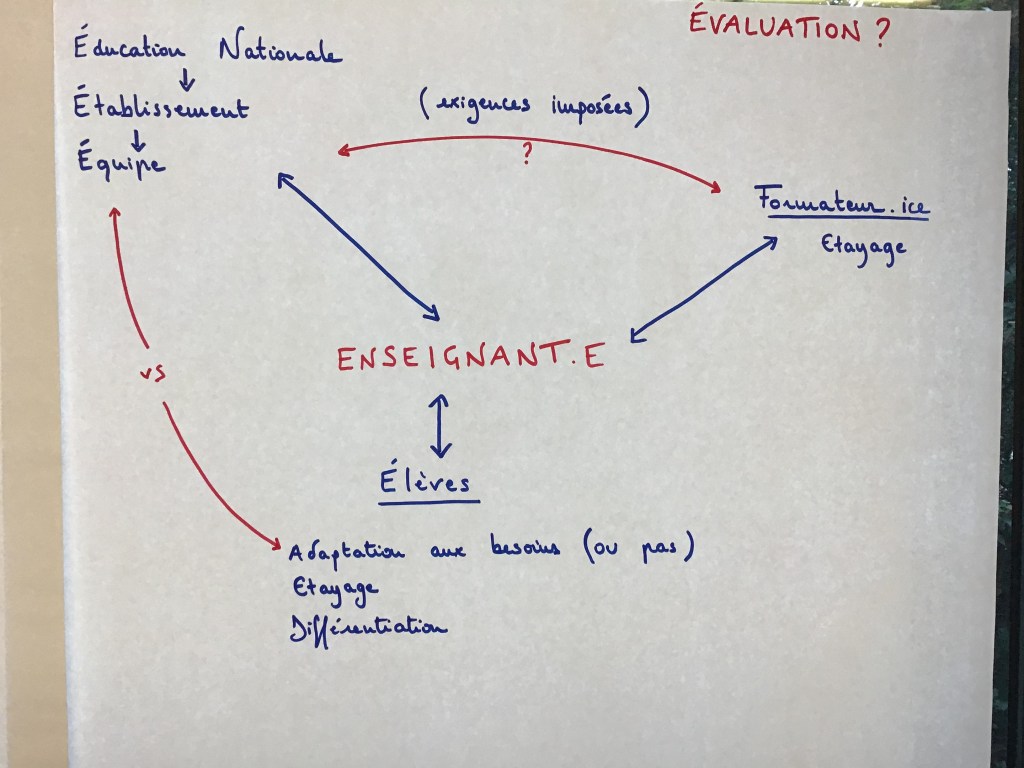 ÉVALUATION ?
Éducation Nationale
Établissement
(exigences imposées)
Équipe
?
Formateur.ice
Etayage
ENSEIGNANT.E
vs
Élèves
Adaptation aux besoins (ou pas)
Etayage
Différentiation